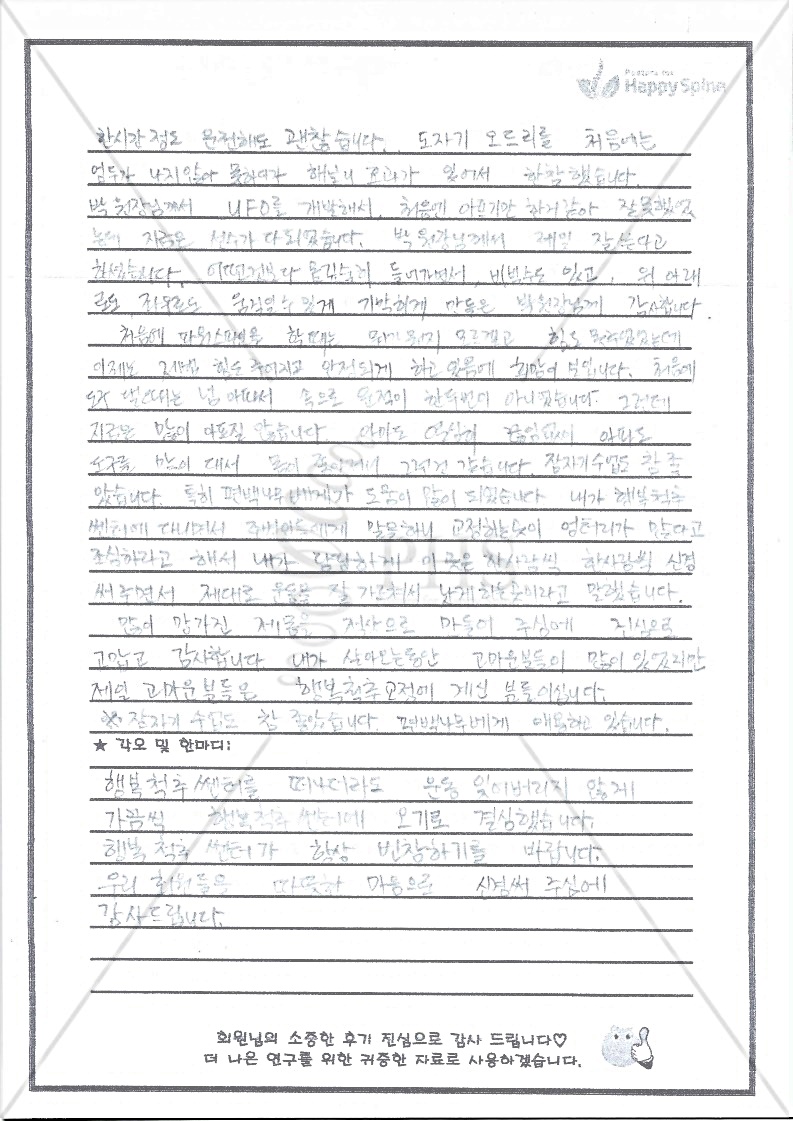 Happy Spine
한시간 정도 운전해도 괜찮습니다. 도자기 오드리를 처음에는
엄두가 나지 않아 못하다가 해보니 효과가 있어서 한참 했습니다.
박 원장님께서 UFO를 개발해서, 처음엔 아프기만 하거같아 잘못했었
는데 지금은 선수가 다 되었습니다. 박 원장님께서 제일 잘한다고
하셨습니다. 들어가면서, 비법수도 있고, 위 아래
로도 좌우로도 움직일수 있게 기막히게 만들은 박원장님께 감사합니다.
처음에 파워스파인을 할때는 뭐가 뭔지 모르겠고 힘도 못주었었는데
이제는 제법 힘도 주어지고 안정되게 하고 있음에 희망이 보입니다. 처음에
도구 댈때는 넘 아파서 속으로 한두번이 아니었습니다. 그런데
지금은 많이 아프질 않습니다. 아마도 끊임없이 아파도
도구를 많이 대서 몸이 그런것 같습니다. 잠자기수업도 참 좋
았습니다. 특히 편백나무베게가 도움이 많이 되었습니다 내가 행복척추
쎈터에 다니면서 말을하니 교정하는곳이 엉터리가 많다고
조심하라고 해서 내가 이 곳은 한사람씩 한사람씩 신경
써주면서 제대로 운동을 잘 가르쳐서 낫게하는곳이라고 말했습니다.
많이 망가진 제몸을 정상으로 만들어 주심에 진심으로
고맙고 감사합니다 내가 살아오는동안 고마운분들이 많이 있었지만
제일 고마운분들은 행복척추교정에 계신 분들이십니다.
※ 잠자기 수업도 참 좋았습니다 편백나무베게 애용하고 있습니다.
★ 각오 및 한마디:
행복척추 쎈터를 떠나더라도 운동 잊어버리지 않게
가끔씩 행복척추 쎈터에 오기로 결심했습니다.
행복 척추 쎈터가 항상 번창하기를 바랍니다.
우리 회원들을 따뜻한 마음으로 신경써 주심에
감사드립니다.
회원님의 소중한 후기 진심으로 감사 드립니다♡
더 나은 연구를 위한 귀중한 자료로 사용하겠습니다.